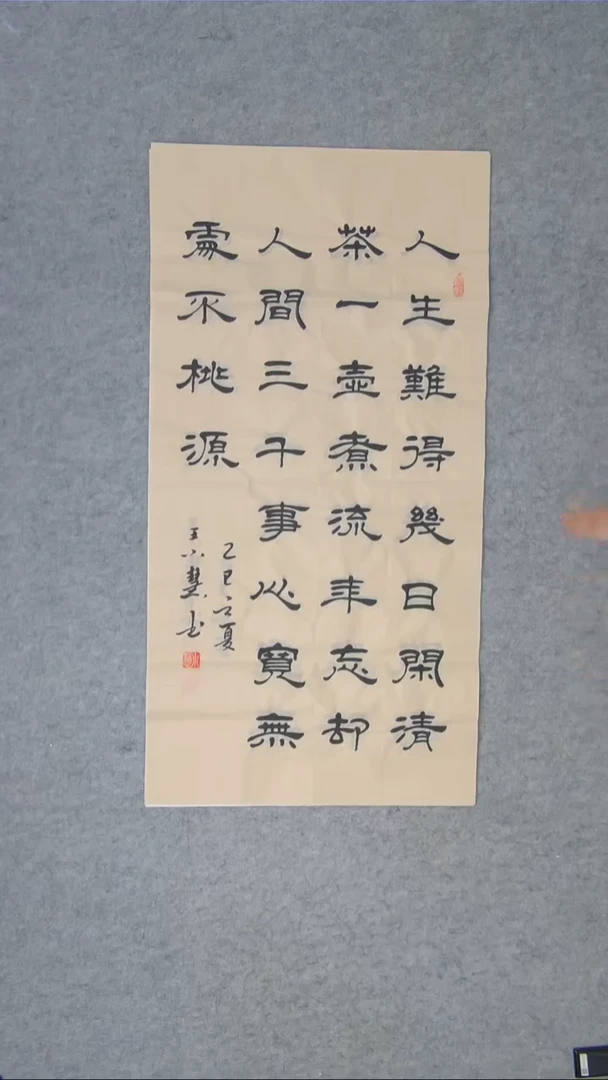 人生難得幾日閑清
茶一壺煮流年忘却
人間三千事心寬無
處不桃源
乙巳夏
王小慧书